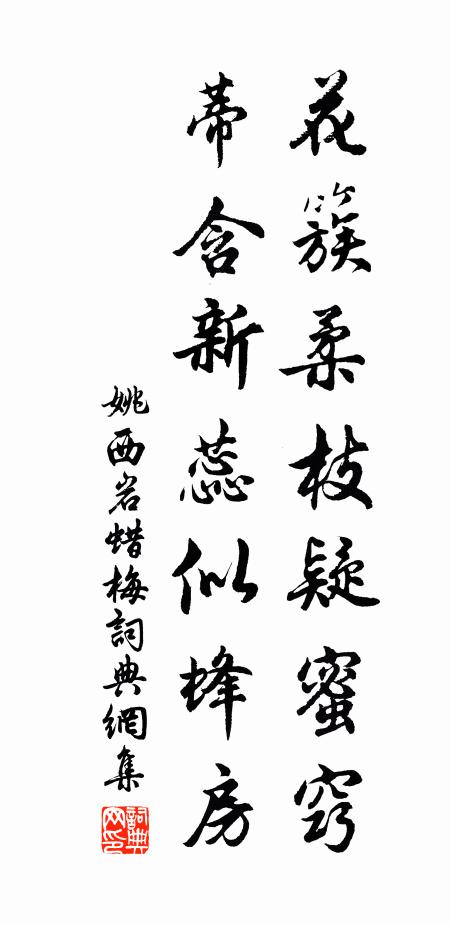 花簇柔枝疑蜜窍
蒂含新蕊似蜂房
姚西岩蜡梅詞典網集
詞典网印